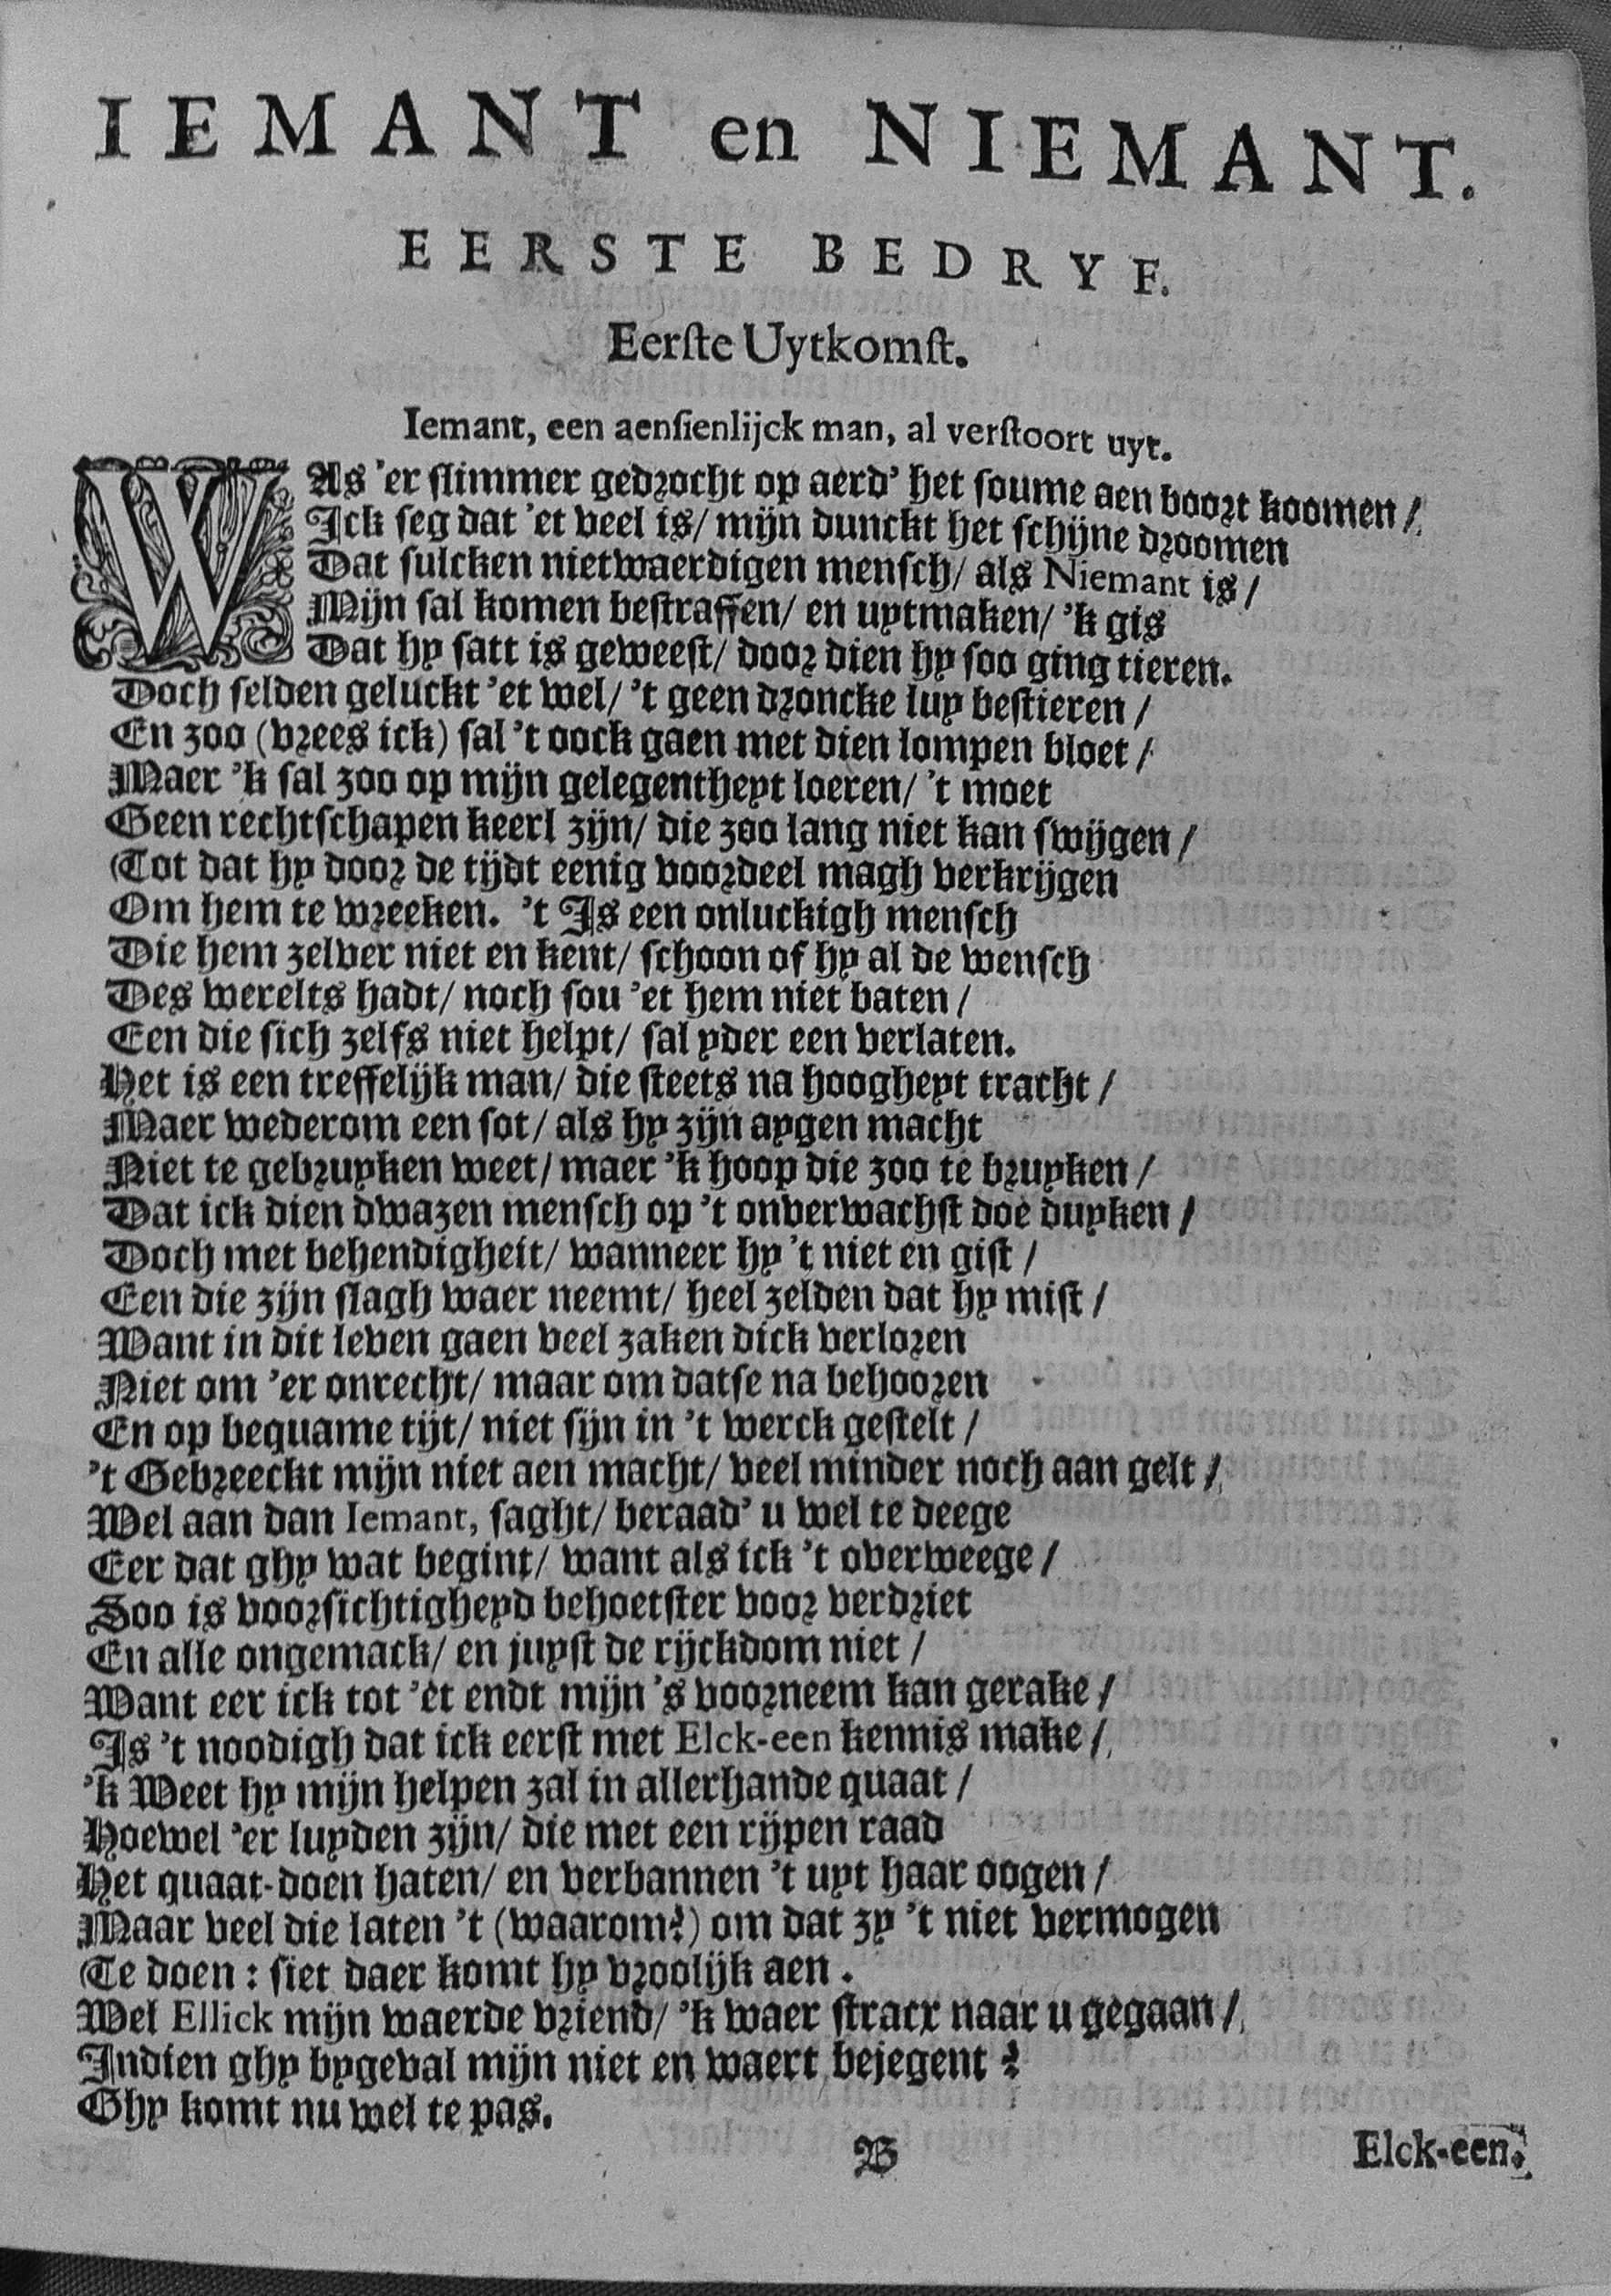 IEMANT en NIEMANT.
EERSTE BEDRYF.
Eerste Uytkomst.
Iemant, een aensienlijck man, al verstoort uyt.
WAs 'er slimmer gedrocht op aerd' het soume aen boort koomen /
Ick seg dat 'et veel is / mijn dunckt het schijne droomen
Dat sulcken nietwaerdigen mensch / als Niemant is /
Mijn sal komen bestraffen / en uytmaken / 'k gis
Dat hy satt is geweest / door dien hy soo ging tieren.
Doch selden geluckt 'et wel / 't geen droncke luy bestieren /
En zoo (vrees ick) sal 't oock gaen met dien lompen bloet /
Maer 'k sal zoo op mijn gelegentheyt loeren / 't moet
Geen rechtschapen keerl zijn / die zoo lang niet kan swijgen /
Tot dat hy door de tijdt eenig voordeel magh verkrijgen
Om hem te wreeken. 't Is een onluckigh mensch
Die hem zelver niet en kent / schoon of hy al de wensch
Des werelts hadt / noch sou 'et hem niet baten /
Een die sich zelfs niet helpt / sal yder een verlaten.
Het is een treffelijk man / die steets na hoogheyt tracht /
Maer wederom een sot / als hy zijn aygen macht
Niet te gebruyken weet / maer 'k hoop die zoo te bruyken /
Dat ick dien dwazen mensch op 't onverwachst doe duyken /
Doch met behendigheit / wanneer hy 't niet en gist /
Een die zijn slagh waer neemt / heel zelden dat hy mist /
Want in dit leven gaen veel zaken dick verloren
Niet om 'er onrecht / maar om datse na behooren
En op bequame tijt / niet sijn in 't werck gestelt /
't Gebreeckt mijn niet aen macht / veel minder noch aan gelt /
Wel aan dan Iemant, saght / beraad' u wel te deege
Eer dat ghy wat begint / want als ick 't overweege /
Soo is voorsichtigheyd behoetster voor verdriet
En alle ongemack / en juyst de rijckdom niet /
Want eer ick tot 'et endt mijn 's voorneem kan gerake /
Is 't noodigh dat ick eerst met Elck-een kennis make /
'k Weet hy mijn helpen zal in allerhande quaat /
Hoewel 'er luyden zijn / die met een rijpen raad
Het quaat-doen haten / en verbannen 't uyt haar oogen /
Maar veel die laten 't (waarom?) om dat zy 't niet vermogen
Te doen : siet daer komt hy vroolijk aen.
Wel Ellick mijn waerde vriend / 'k waer stracx naar u gegaan /
Indien ghy bygeval mijn niet en waert bejegent ?
Ghy komt nu wel te pas.
B
Elck-een.